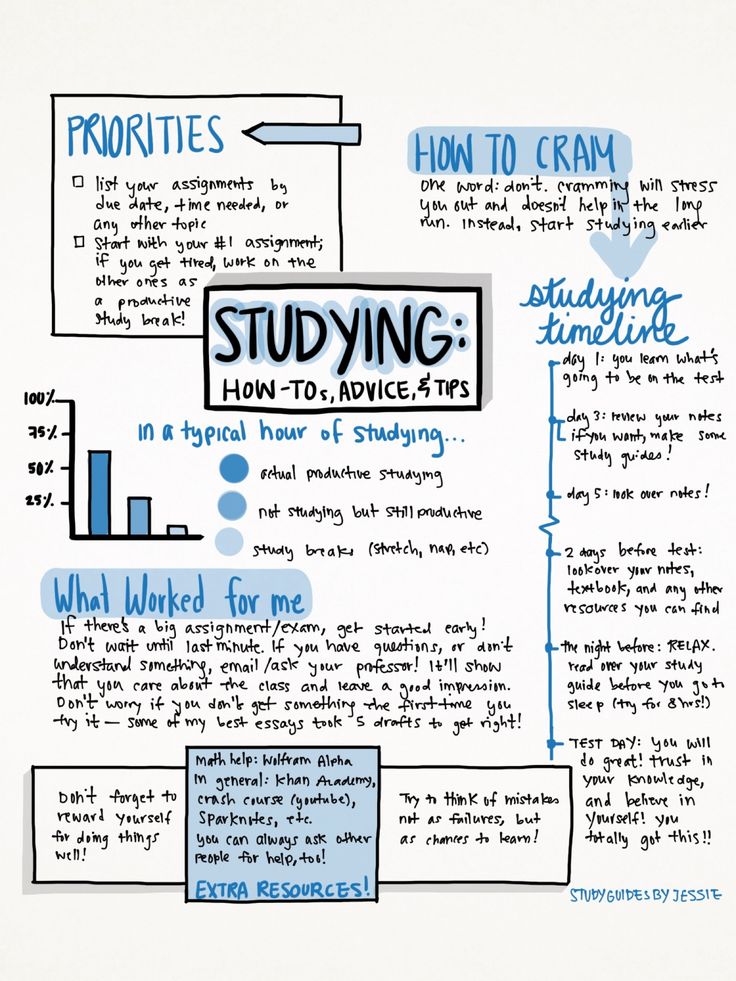 PRIORITIES
list your assignments by
due date, time needed, or
any other topic
Start with your #1 assignment;
if you get tired, work on the
other ones as
a productive
study break!
HOW TO CRAM
one word: don't. cramming will stress
you out and doesn't help in the long
run. Instead, start studying earlier
STUDYING:
HOW-TOs, ADVICE, & TIPS
studying
timeline
day 1: you learn what's
going to be on the test
day 3: review your notes
if you want, make some
study guides!
day 5: look over notes!
2 days before test:
look over your notes,
textbook, and any other
resources you can find
the night before: RELAX.
read over your study
guide before you go to
sleep (try for 8 hrs!)
TEST DAY: you will
do great! trust in
your knowledge,
and believe in
yourself! you
totally got this!!
100%
75%
50%
25%
in a typical hour of studying...
actual productive studying
not studying but still productive
study break (stretch, nap, etc)
What Worked for me
If there's a big assignment/exam, get started early!
Don't wait until last minute. If you have questions, or don't
understand something, email/ask your professor! It'll show
that you care about the class and leave a good impression.
Don't worry if you don't get something the first time you
try it — some of my best essays took 5 drafts to get right!
Don't forget to
reward yourself
for doing things
well!
Math help: Wolfram Alpha
In general: Khan Academy,
crash course (youtube),
Sparknotes, etc.
you can always ask other
people for help, too!
EXTRA RESOURCES!
Try to think of mistakes
not as failures, but
as chances to learn!
STUDYGUIDESBYJESSIE